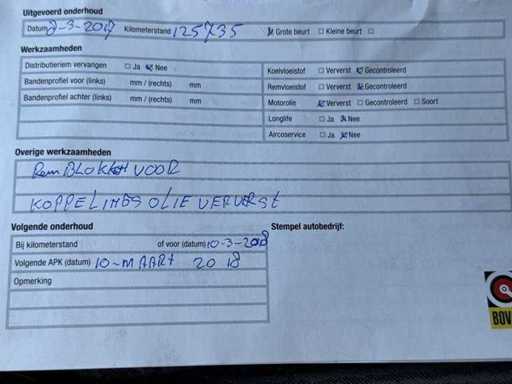 Uitgevoerd onderhoud
Datum 9-3-2017 Kilometerstand 125735 Grote beurt Kleine beurt
Werkzaamheden
Distributieriem vervangen Ja Nee
Bandenprofiel voor (links) mm / (rechts) mm
Bandenprofiel achter (links) mm / (rechts) mm
Koelvloeistof Ververst Gecontroleerd
Remvloeistof Ververst Gecontroleerd
Motorolie Ververst Gecontroleerd Soort
Longlife Ja Nee
Aircoservice Ja Nee
Overige werkzaamheden
Rem BLOKKEN VOOR
KOPPELINGS OLIE VERVERST
Volgende onderhoud
Bij kilometerstand of voor (datum) 10-3-2018
Volgende APK (datum) 10-MAART 2018
Opmerking
Stempel autobedrijf:
BOV